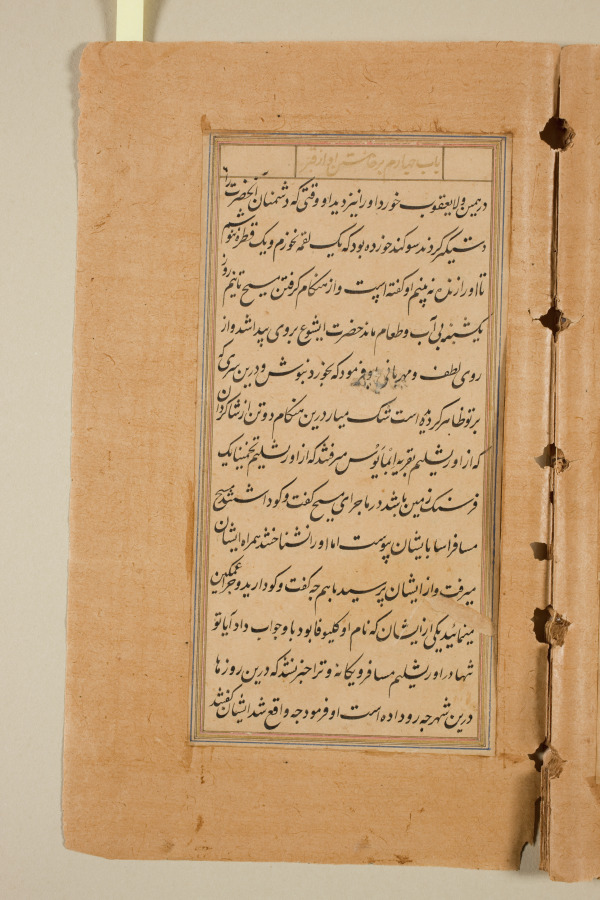 باب چهارم برخاستن او از قبر
در همین ولا یعقوب خورد او را نیز دید او وقتی که دشمنان آنحضرت را
دستگیر کردند سوکند خورده بود که یک لقمه نخورم و یک قطره ننوشم
تا او را زنده نه بینم او کفته است و از هنکام کرفتن مسیح تا نیم روز
یکشنبه بی آب و طعام ماند حضرت ایشوع بروی پیدا شد و از
روی لطف و مهربانی فرمود که بخور و بنوش و درین سری که
بر تو ظاهر کرده است شک میار درین هنکام دو تن از شاکردان
که از اورشلیم بقریه ایمأیوس میرفتند که از اورشلیم تخمیناً یک
فرسنک زمین باشد در ماجرای مسیح کفت و کو داشتند مسیح
مسافر اسا بایشان پیوست اما او را نشناختند همراه ایشان
میرفت و از ایشان پرسید باهم چه کفت و کو دارید و چرا غمکین
مینمائید یکی از ایشان که نام او کلیوفا بود با و جواب داد آیا تو
تنها در اورشلیم مسافر و بیکانهٔ و ترا خبر نشد که درین روزها
درین شهر چه روداده است او فرمود چه واقع شد ایشان کفتند